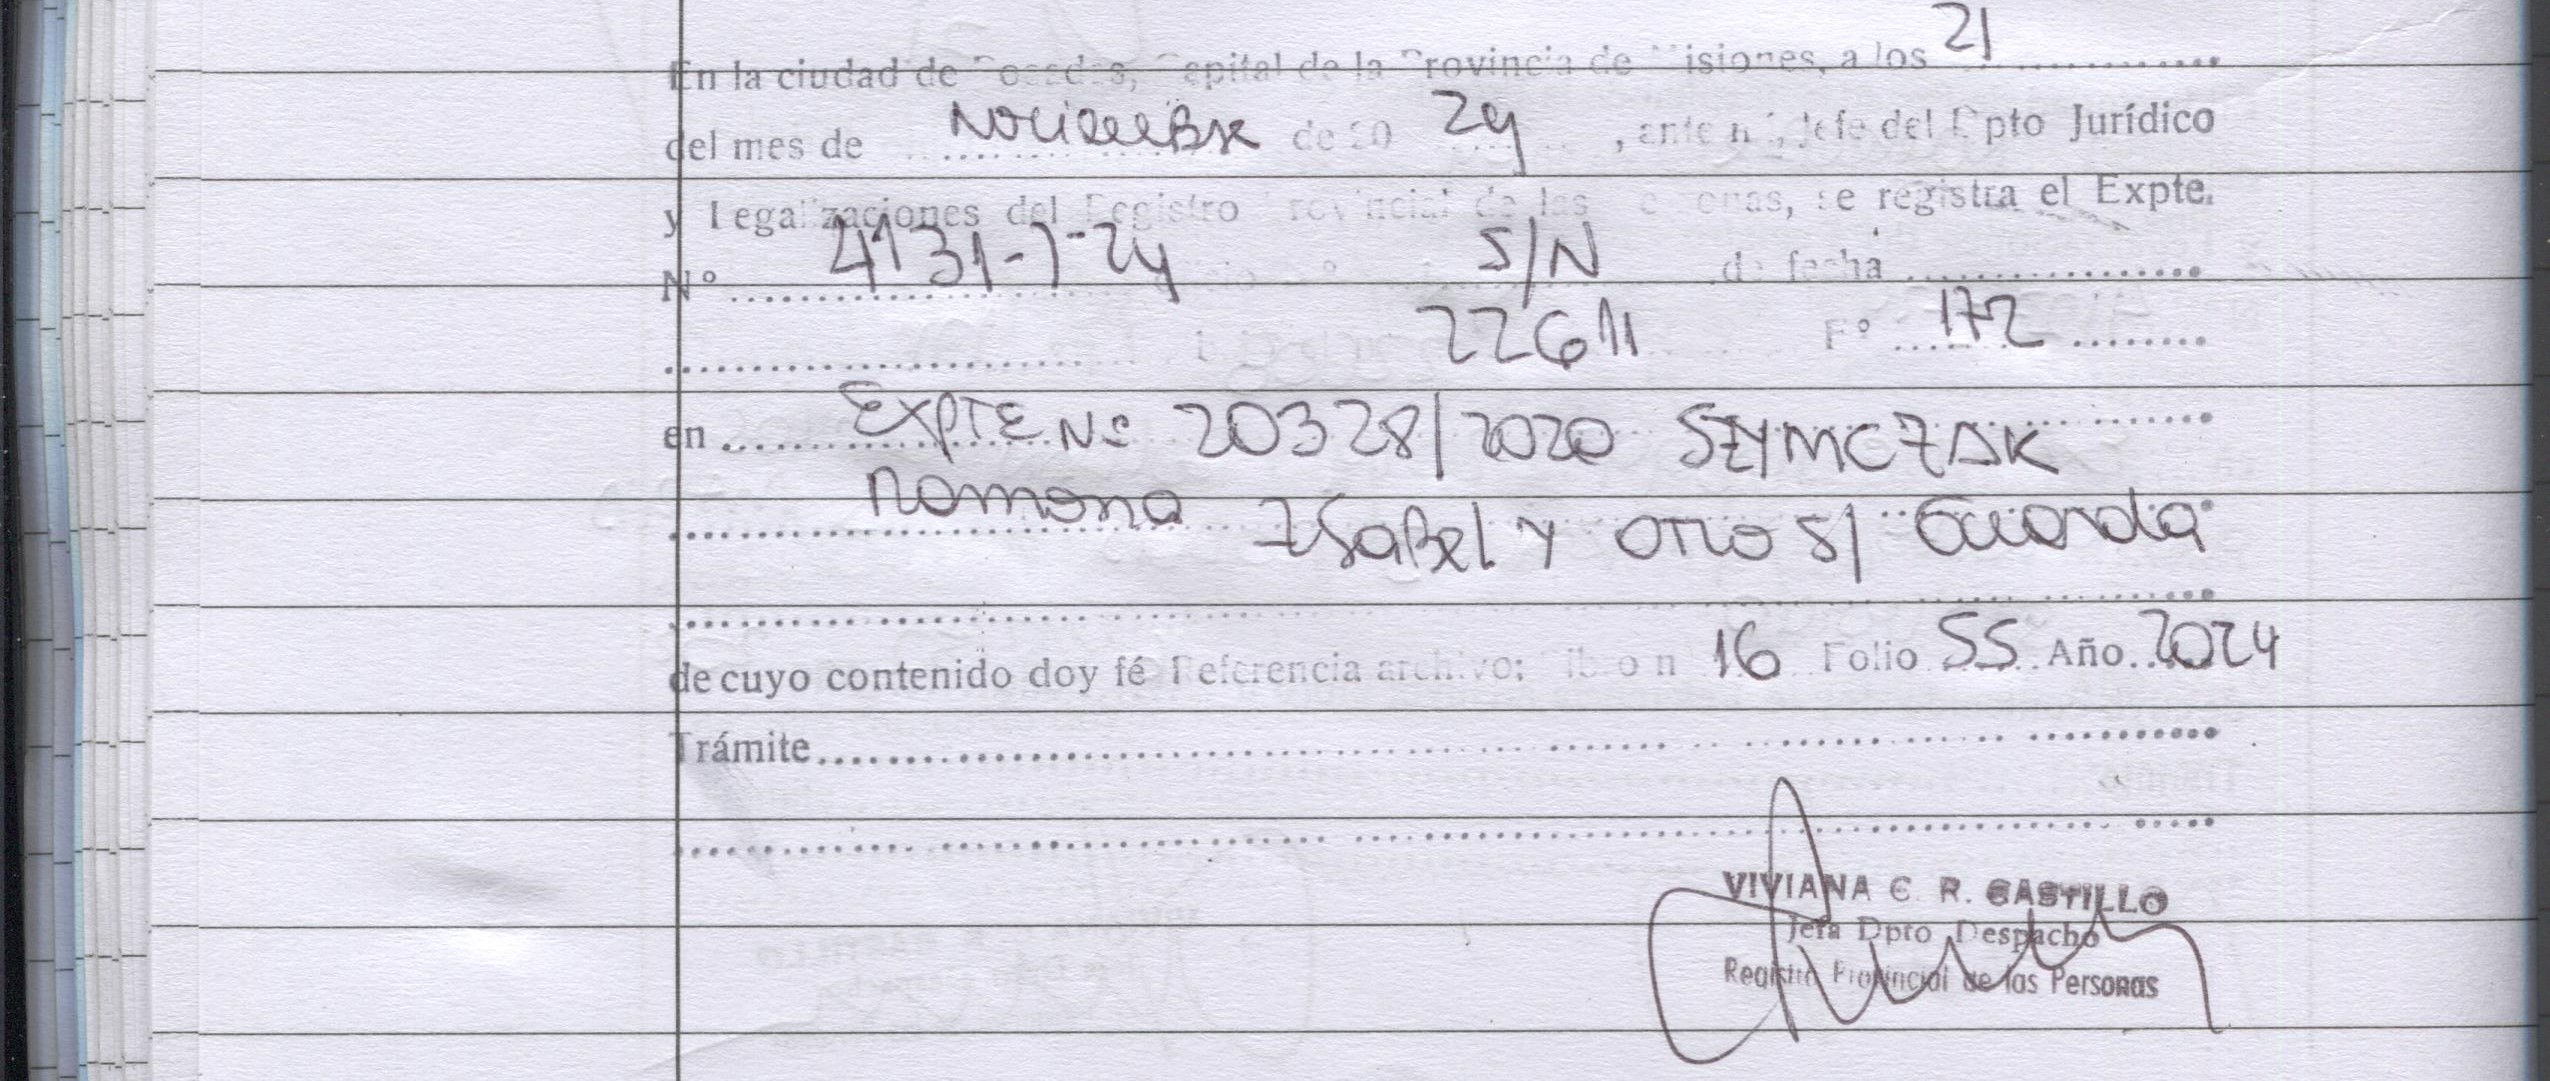 En la ciudad de Posadas, Capital de la Provincia de Misiones, a los 21
del mes de Noviembre de 20 24, ante mí, Jefe del Dpto Jurídico
y Legalizaciones del Registro Provincial de las Personas, se registra el Expte.
Nº 4131-7-24 S/N de fecha
22611 Fº 172
en EXPTE Nº 20328/2020 SZYMCZAK
Ramona Isabel y otro s/ Guarda
de cuyo contenido doy fé Referencia archivo: Libro n 16 Folio 55 Año 2024
Trámite
VIVIANA C. R. CASTILLO
Jefa Dpto Despacho
Registro Provincial de las Personas